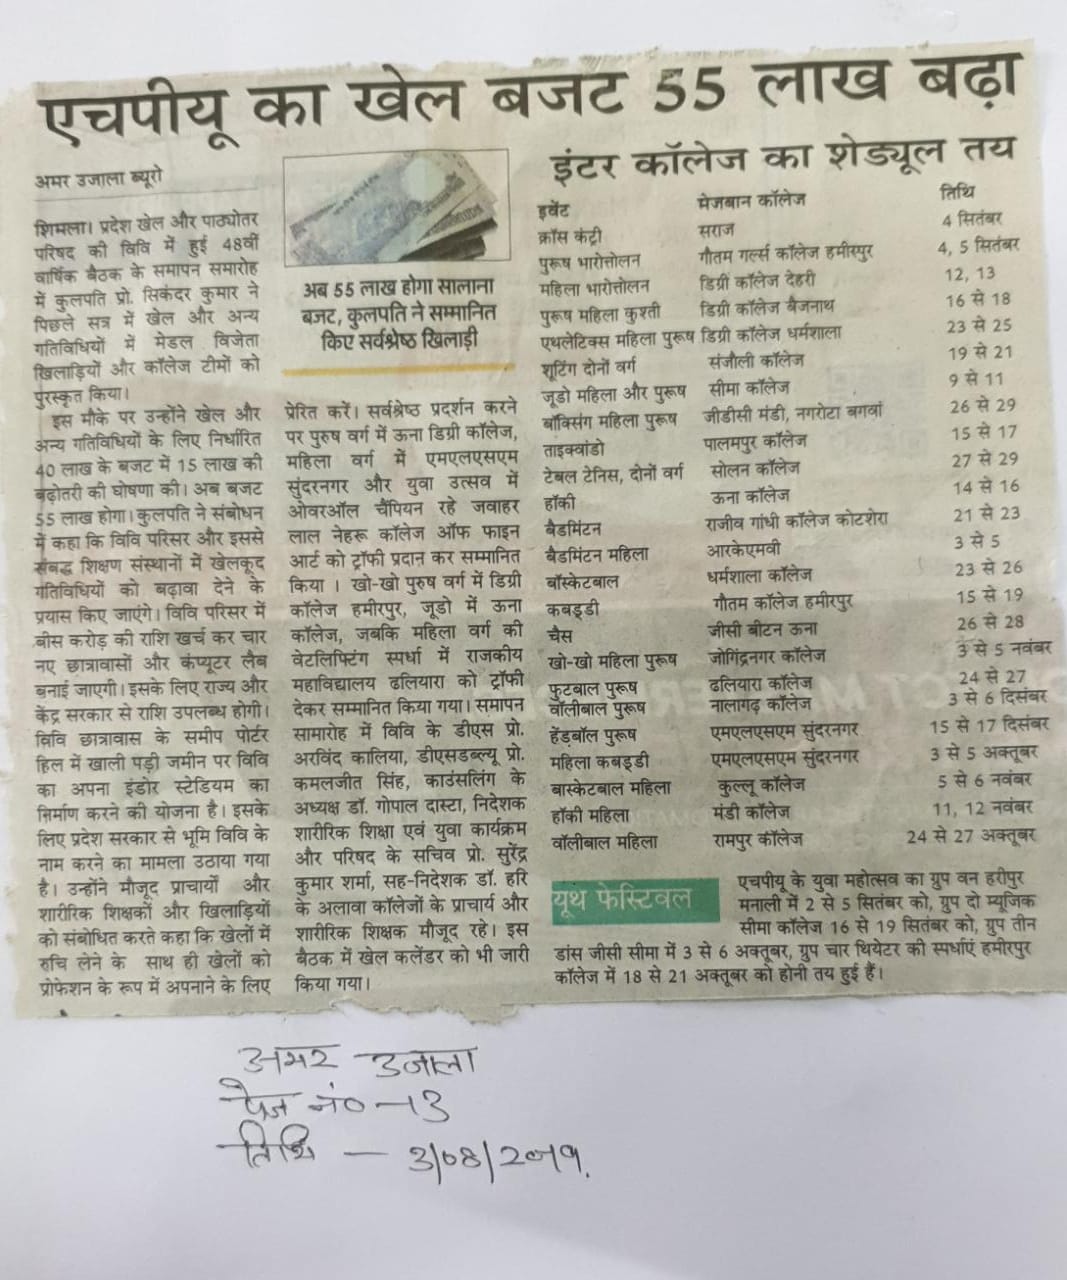 एचपीयू का खेल बजट 55 लाख बढ़ा
अमर उजाला ब्यूरो
शिमला। प्रदेश खेल और पाठ्योतर
परिषद की विवि में हुई 48वीं
वार्षिक बैठक के समापन समारोह
में कुलपति प्रो. सिकंदर कुमार ने
पिछले सत्र में खेल और अन्य
गतिविधियों में मेडल विजेता
खिलाड़ियों और कॉलेज टीमों को
पुरस्कृत किया।
इस मौके पर उन्होंने खेल और
अन्य गतिविधियों के लिए निर्धारित
40 लाख के बजट में 15 लाख की
बढ़ोतरी की घोषणा की। अब बजट
55 लाख होगा। कुलपति ने संबोधन
में कहा कि विवि परिसर और इससे
संबद्ध शिक्षण संस्थानों में खेलकूद
गतिविधियों को बढ़ावा देने के
प्रयास किए जाएंगे। विवि परिसर में
बीस करोड़ की राशि खर्च कर चार
नए छात्रावासों और कंप्यूटर लैब
बनाई जाएगी। इसके लिए राज्य और
केंद्र सरकार से राशि उपलब्ध होगी।
विवि छात्रावास के समीप पोर्टर
हिल में खाली पड़ी जमीन पर विवि
का अपना इंडोर स्टेडियम का
निर्माण करने की योजना है। इसके
लिए प्रदेश सरकार से भूमि विवि के
नाम करने का मामला उठाया गया
है। उन्होंने मौजूद प्राचार्यों और
शारीरिक शिक्षकों और खिलाड़ियों
को संबोधित करते कहा कि खेलों में
रुचि लेने के साथ ही खेलों को
प्रोफेशन के रूप में अपनाने के लिए
अब 55 लाख होगा सालाना
बजट, कुलपति ने सम्मानित
किए सर्वश्रेष्ठ खिलाड़ी
प्रेरित करें। सर्वश्रेष्ठ प्रदर्शन करने
पर पुरुष वर्ग में ऊना डिग्री कॉलेज,
महिला वर्ग में एमएलएसएम
सुंदरनगर और युवा उत्सव में
ओवरऑल चैंपियन रहे जवाहर
लाल नेहरू कॉलेज ऑफ फाइन
आर्ट को ट्रॉफी प्रदान कर सम्मानित
किया । खो-खो पुरुष वर्ग में डिग्री
कॉलेज हमीरपुर, जूडो में ऊना
कॉलेज, जबकि महिला वर्ग की
वेटलिफ्टिंग स्पर्धा में राजकीय
महाविद्यालय ढलियारा को ट्रॉफी
देकर सम्मानित किया गया। समापन
सामारोह में विवि के डीएस प्रो.
अरविंद कालिया, डीएसडब्ल्यू प्रो.
कमलजीत सिंह, काउंसलिंग के
अध्यक्ष डॉ. गोपाल दास्टा, निदेशक
शारीरिक शिक्षा एवं युवा कार्यक्रम
और परिषद के सचिव प्रो. सुरेंद्र
कुमार शर्मा, सह-निदेशक डॉ. हरि
के अलावा कॉलेजों के प्राचार्य और
शारीरिक शिक्षक मौजूद रहे। इस
बैठक में खेल कलेंडर को भी जारी
किया गया।
इंटर कॉलेज का शेड्यूल तय
इवेंट मेजबान कॉलेज तिथि
क्रॉस कंट्री सराज 4 सितंबर
पुरूष भारोत्तोलन गौतम गर्ल्स कॉलेज हमीरपुर 4, 5 सितंबर
महिला भारोत्तोलन डिग्री कॉलेज देहरी 12, 13
पुरूष महिला कुश्ती डिग्री कॉलेज बैजनाथ 16 से 18
एथलेटिक्स महिला पुरूष डिग्री कॉलेज धर्मशाला 23 से 25
शूटिंग दोनों वर्ग संजौली कॉलेज 19 से 21
जूडो महिला और पुरूष सीमा कॉलेज 9 से 11
बॉक्सिंग महिला पुरूष जीडीसी मंडी, नगरोटा बगवां 26 से 29
ताइक्वांडो पालमपुर कॉलेज 15 से 17
टेबल टेनिस, दोनों वर्ग सोलन कॉलेज 27 से 29
हॉकी ऊना कॉलेज 14 से 16
बैडमिंटन राजीव गांधी कॉलेज कोटशेरा 21 से 23
बैडमिंटन महिला आरकेएमवी 3 से 5
बॉस्केटबाल धर्मशाला कॉलेज 23 से 26
कबड्डी गौतम कॉलेज हमीरपुर 15 से 19
चैस जीसी बीटन ऊना 26 से 28
खो-खो महिला पुरूष जोगिंद्रनगर कॉलेज 3 से 5 नवंबर
फुटबाल पुरूष ढलियारा कॉलेज 24 से 27
वॉलीबाल पुरूष नालागढ़ कॉलेज 3 से 6 दिसंबर
हेंडबॉल पुरूष एमएलएसएम सुंदरनगर 15 से 17 दिसंबर
महिला कबड्डी एमएलएसएम सुंदरनगर 3 से 5 अक्तूबर
बास्केटबाल महिला कुल्लू कॉलेज 5 से 6 नवंबर
हॉकी महिला मंडी कॉलेज 11, 12 नवंबर
वॉलीबाल महिला रामपुर कॉलेज 24 से 27 अक्तूबर
यूथ फेस्टिवल
एचपीयू के युवा महोत्सव का ग्रुप वन हरीपुर
मनाली में 2 से 5 सितंबर को, ग्रुप दो म्यूजिक
सीमा कॉलेज 16 से 19 सितंबर को, ग्रुप तीन
डांस जीसी सीमा में 3 से 6 अक्तूबर, ग्रुप चार थियेटर की स्पर्धाएं हमीरपुर
कॉलेज में 18 से 21 अक्तूबर को होनी तय हुई हैं।
अमर उजाला
पेज नं० -13
तिथि - 3/08/2019.